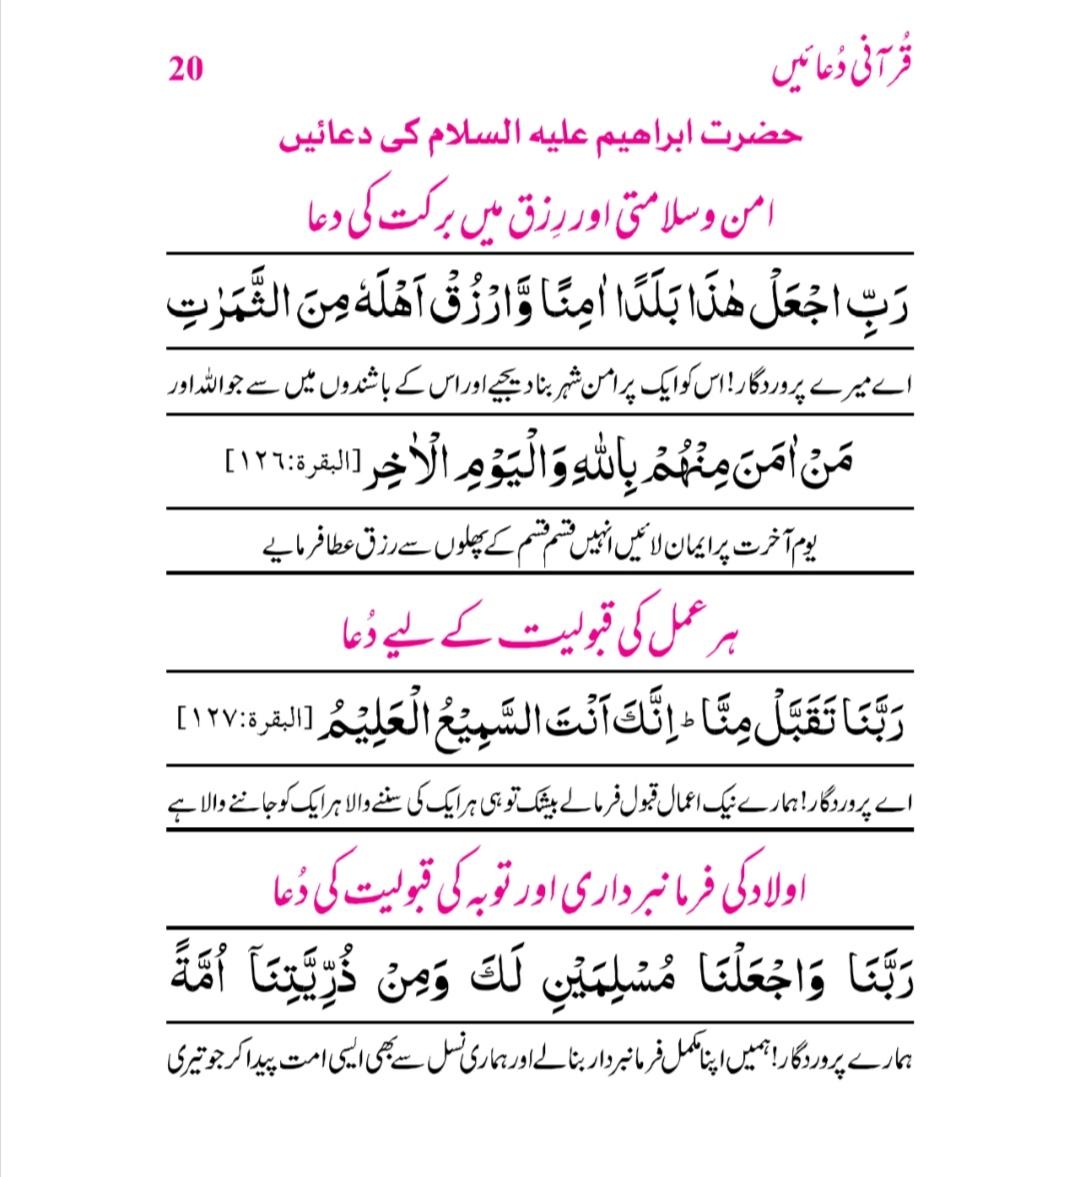 قُرآنی دُعائیں
20
حضرت ابراهیم علیه السلام کی دعائیں
امن وسلامتی اور رِزق میں برکت کی دعا
رَبِّ اجْعَلْ هٰذَا بَلَدًا اٰمِنًا وَّارْزُقْ اَهْلَهٗ مِنَ الثَّمَرٰتِ
اے میرے پروردگار! اس کو ایک پر امن شہر بنا دیجیے اور اس کے باشندوں میں سے جو اللہ اور
مَنْ اٰمَنَ مِنْهُمْ بِاللّٰهِ وَالْيَوْمِ الْاٰخِرِ [البقرة:١٢٦]
یوم آخرت پر ایمان لائیں انہیں قسم قسم کے پھلوں سے رزق عطا فرمایے
ہر عمل کی قبولیت کے لیے دُعا
رَبَّنَا تَقَبَّلْ مِنَّا ؕ اِنَّكَ اَنْتَ السَّمِيْعُ الْعَلِيْمُ [البقرة:١٢٧]
اے پروردگار! ہمارے نیک اعمال قبول فرما لے بیشک تو ہی ہر ایک کی سننے والا ہر ایک کو جاننے والا ہے
اولاد کی فرمانبرداری اور توبہ کی قبولیت کی دُعا
رَبَّنَا وَاجْعَلْنَا مُسْلِمَيْنِ لَكَ وَمِنْ ذُرِّيَّتِنَآ اُمَّةً
ہمارے پروردگار! ہمیں اپنا مکمل فرمانبردار بنا لے اور ہماری نسل سے بھی ایسی امت پیدا کر جو تیری